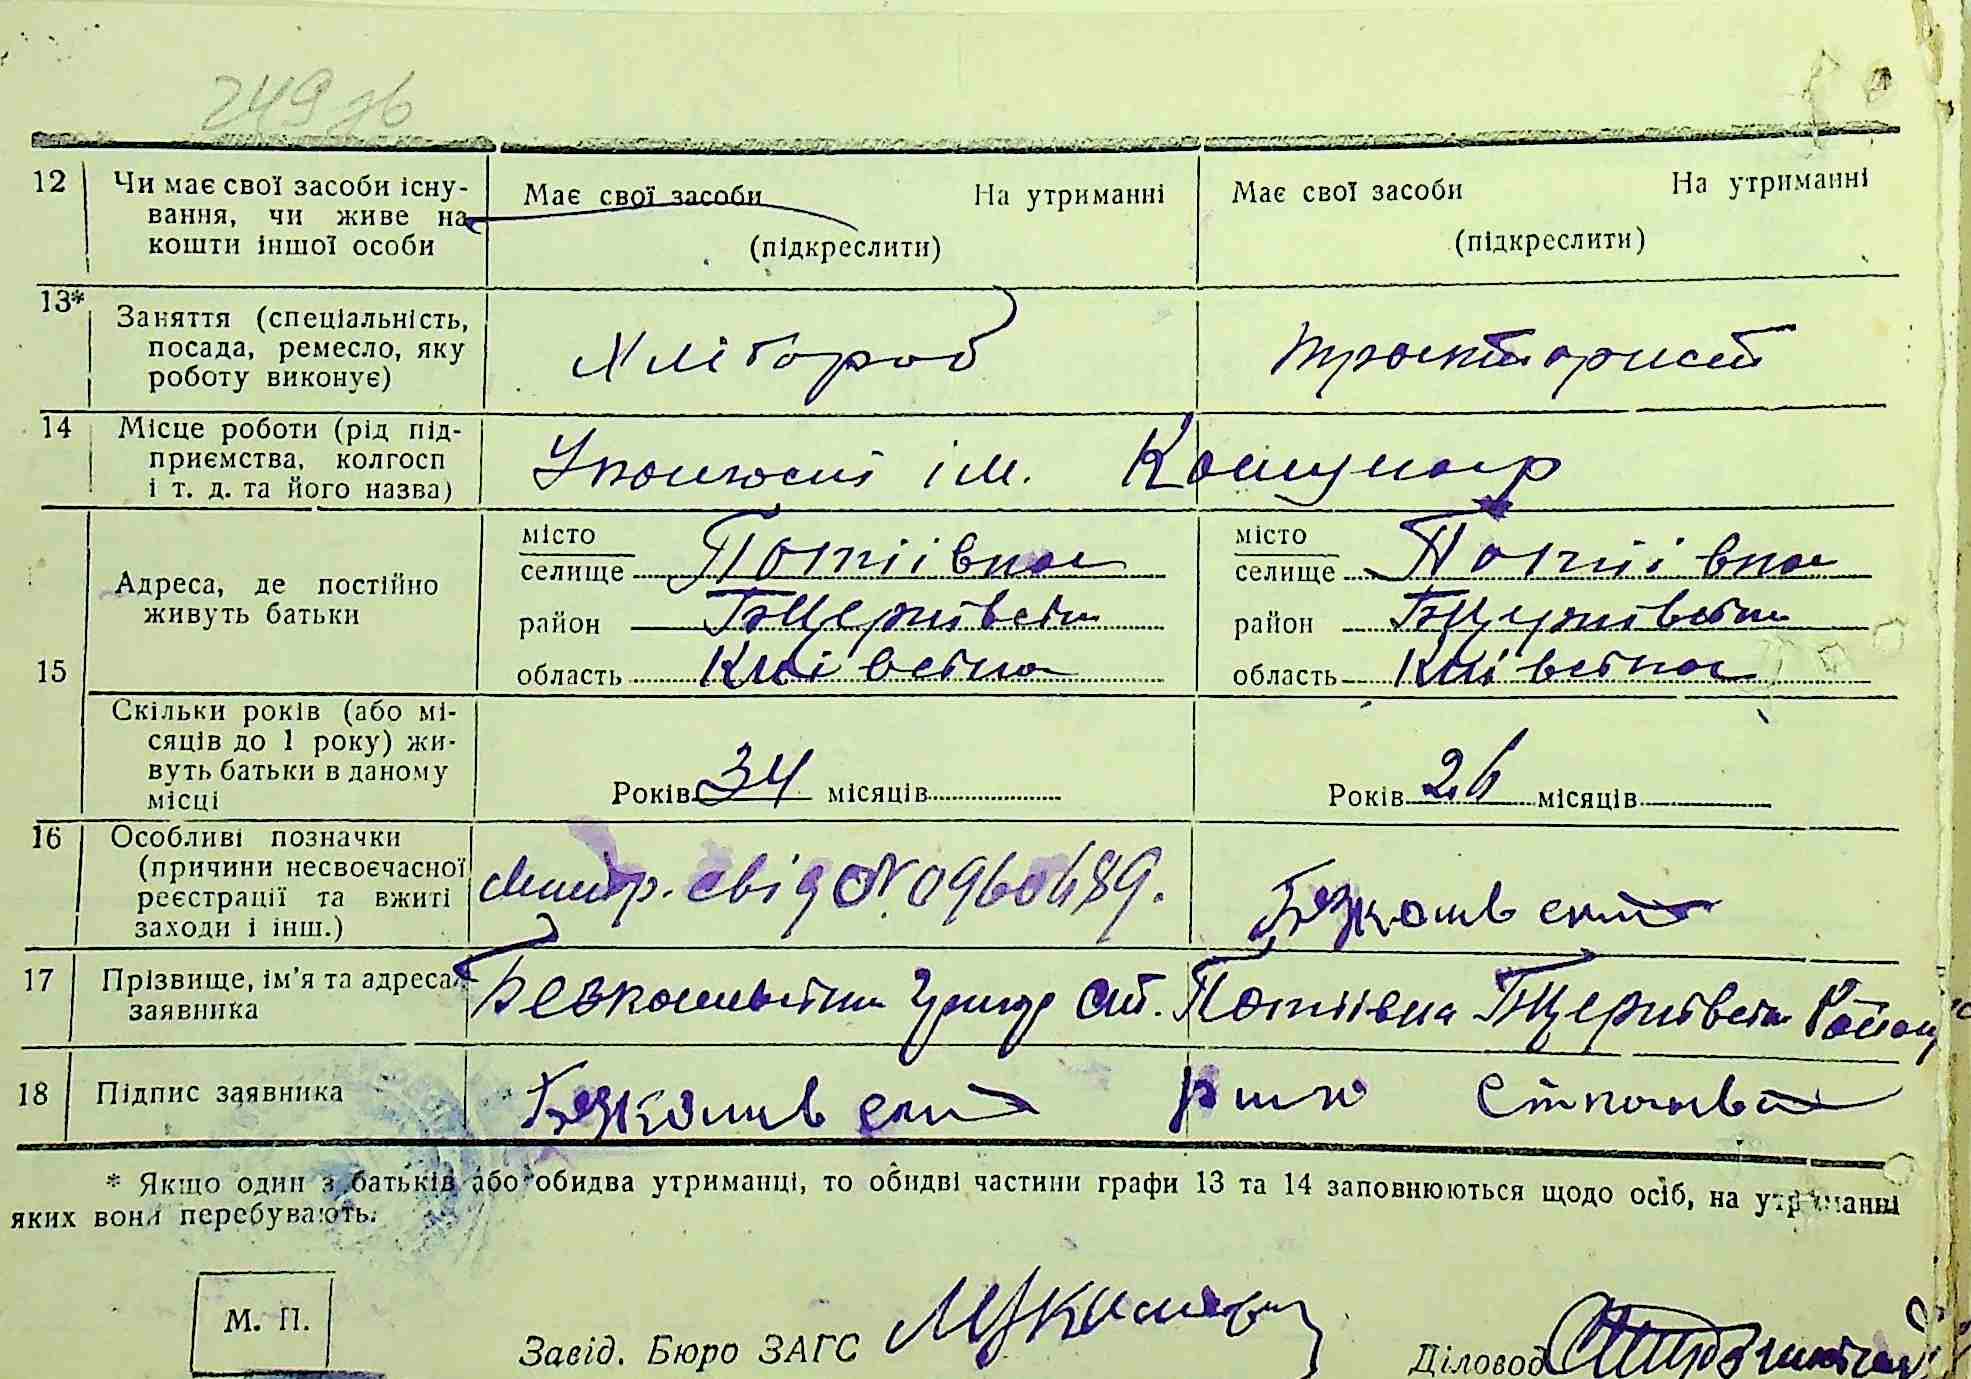 249 зв
12 Чи має свої засоби існу-
вання, чи живе на
кошти іншої особи
Має свої засоби На утриманні
(підкреслити)
Має свої засоби На утриманні
(підкреслити)
13* Заняття (спеціальність,
посада, ремесло, яку
роботу виконує)
Хлібороб
тракторист
14 Місце роботи (рід під-
приємства, колгосп
і т. д. та його назва)
У колгоспі ім. Комунар
15 Адреса, де постійно
живуть батьки
місто
селище Потіївка
район БЦерківськ
область Київська
місто
селище Потіївка
район БЦерківськ
область Київська
Скільки років (або мі-
сяців до 1 року) жи-
вуть батьки в даному
місці
Років 34 місяців
Років 26 місяців
16 Особливі позначки
(причини несвоєчасної
реєстрації та вжиті
заходи і інш.)
свід №
17 Прізвище, ім'я та адреса
заявника
с. Потіївка БЦерківськ району
18 Підпис заявника
* Якщо один з батьків або обидва утриманці, то обидві частини графи 13 та 14 заповнюються щодо осіб, на утриманні
яких вони перебувають.
М. П.
Завід. Бюро ЗАГС
Діловод